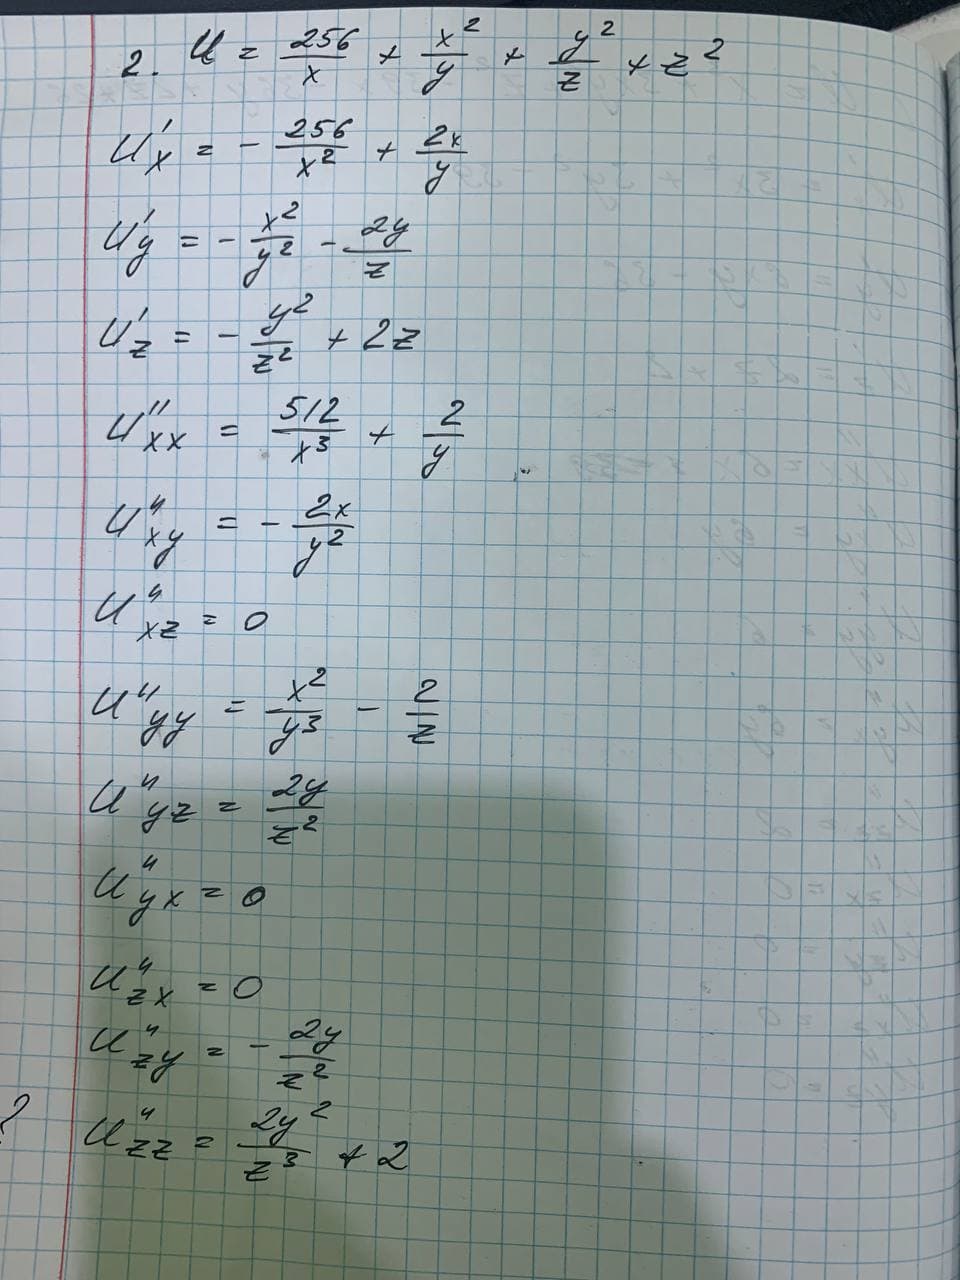 2. U = 256/x + x²/y + y²/z + z²
U'x = - 256/x² + 2x/y
U'y = - x²/y² - 2y/z
U'z = - y²/z² + 2z
U''xx = 512/x³ + 2/y
U''xy = - 2x/y²
U''xz = 0
U''yy = x²/y³ - 2/z
U''yz = 2y/z²
U''yx = 0
U''zx = 0
U''zy = - 2y/z²
? U''zz = 2y²/z³ + 2